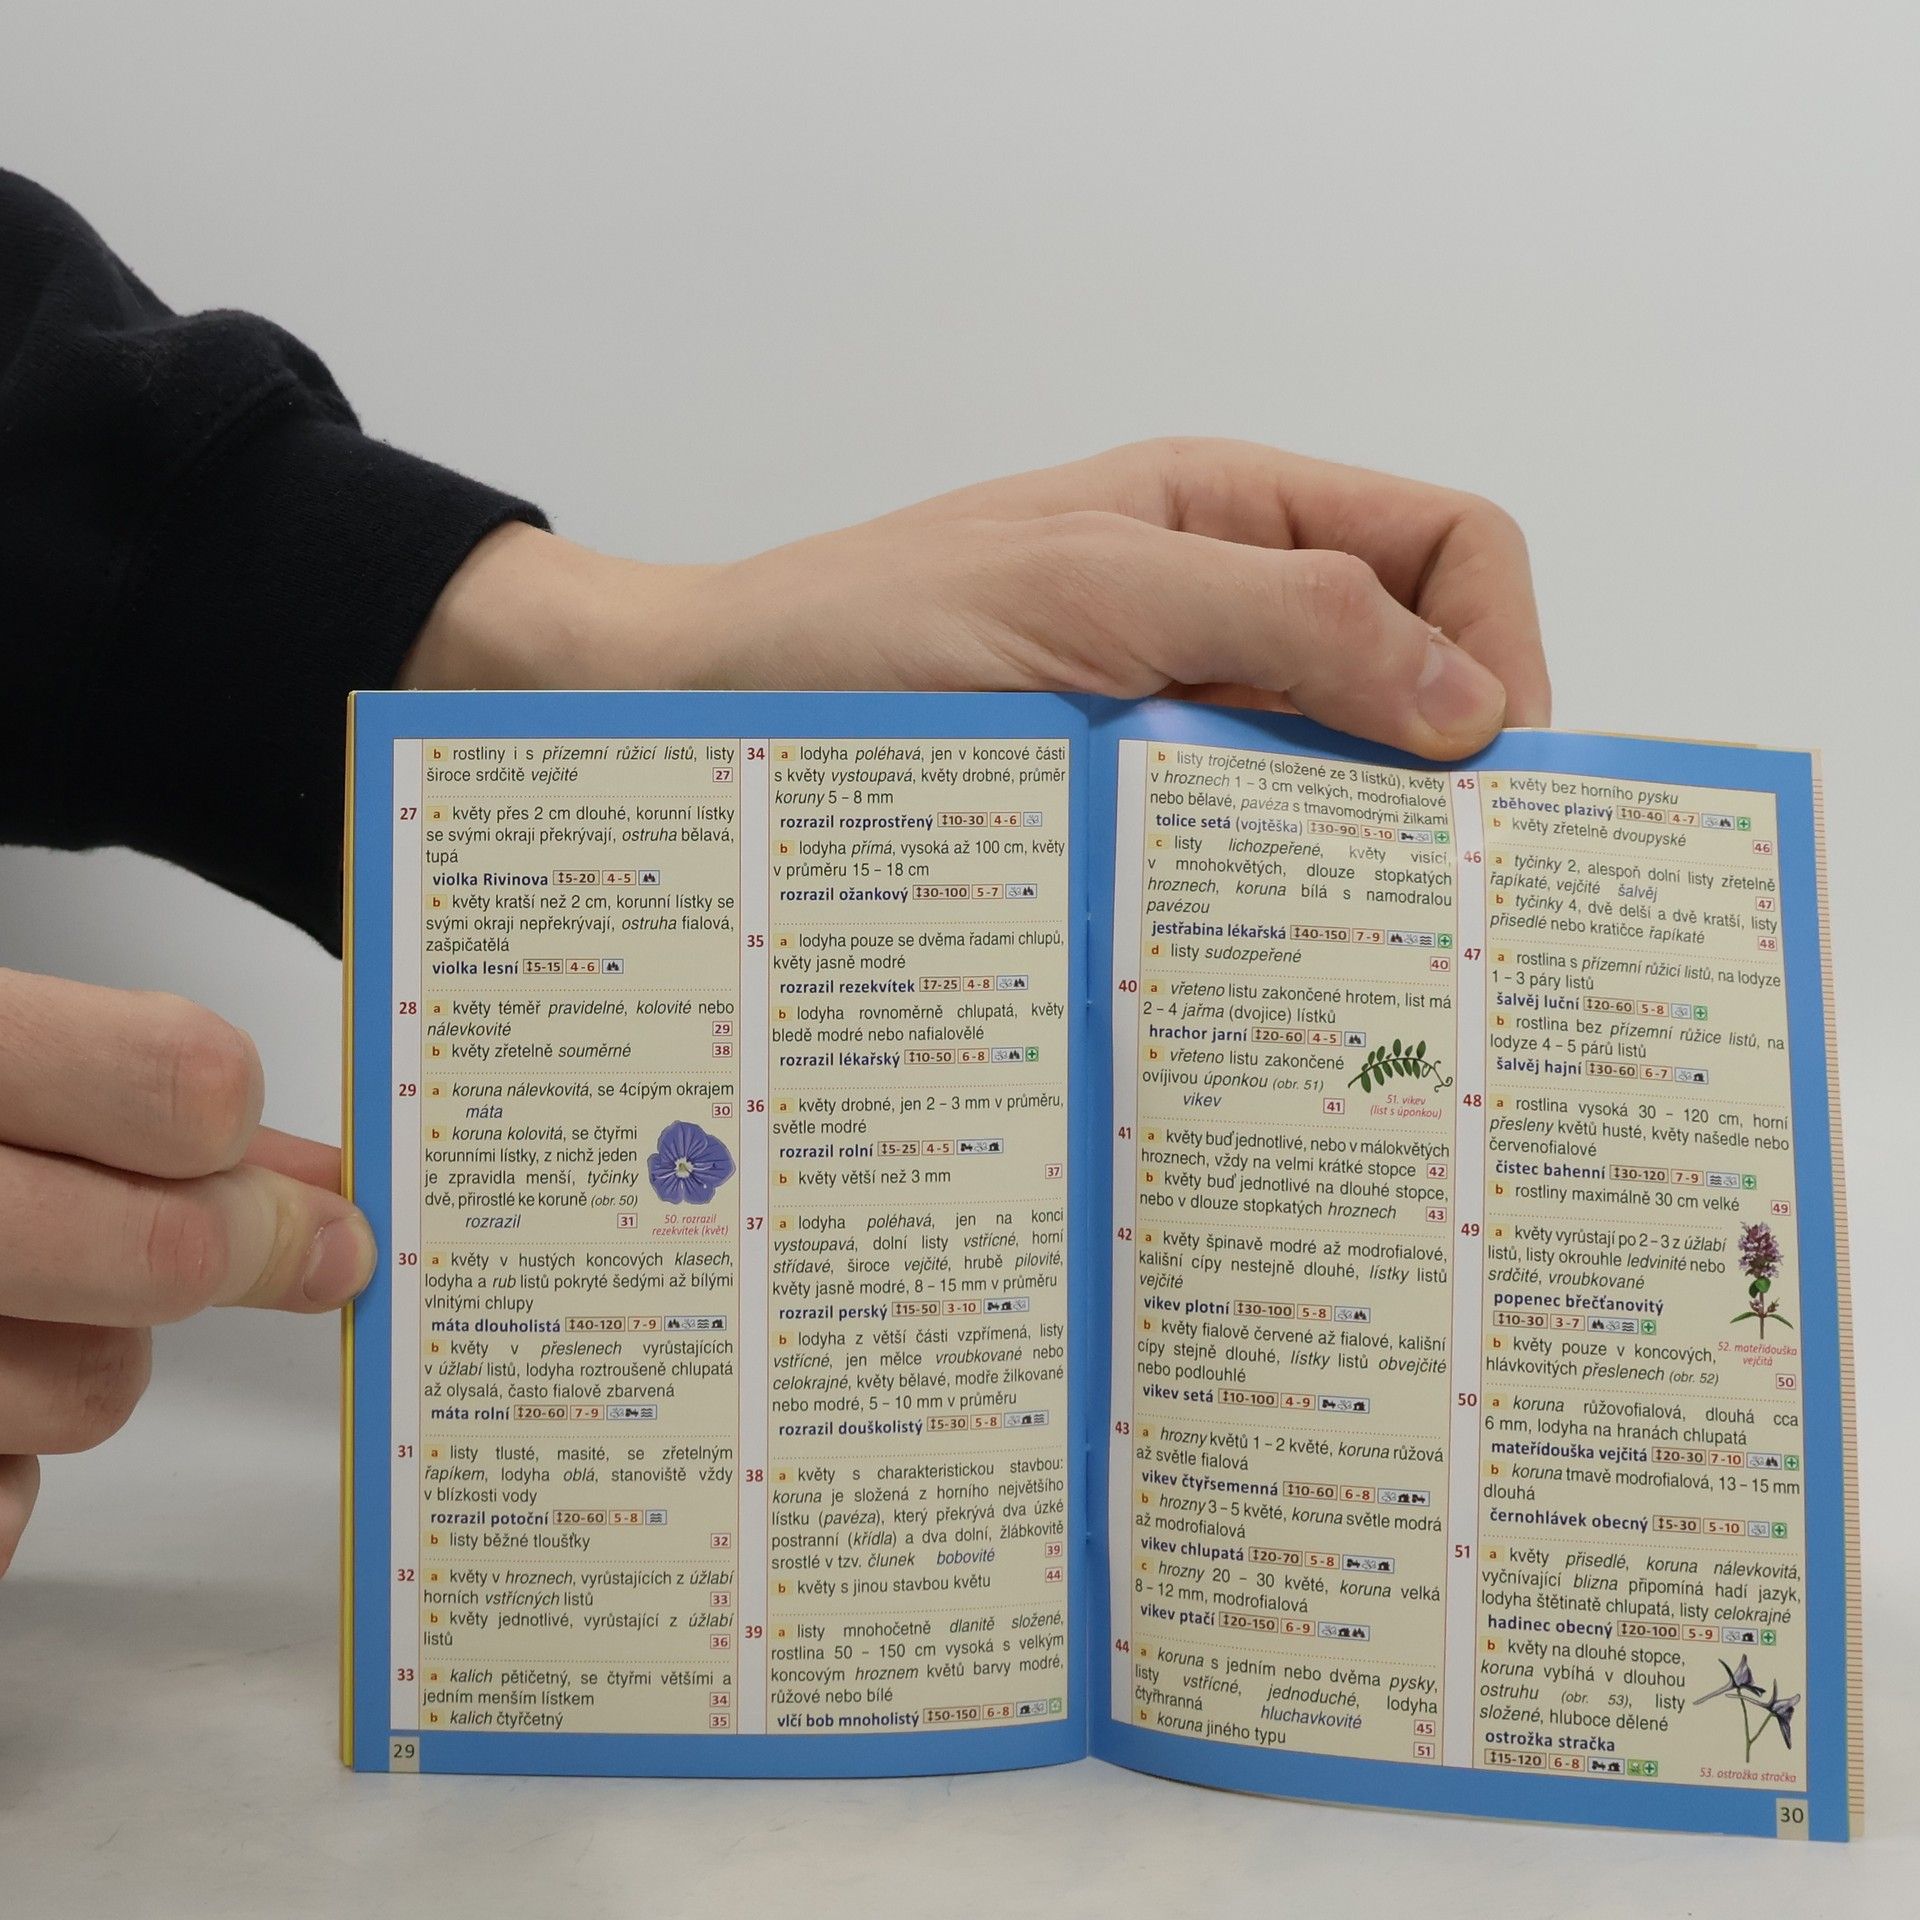 b rostliny i s přízemní růžicí listů, listy
široce srdčitě vejčité 27
27 a květy přes 2 cm dlouhé, korunní lístky
se svými okraji překrývají, ostruha bělavá,
tupá
violka Rivinova ↕5-20 4-5
b květy kratší než 2 cm, korunní lístky se
svými okraji nepřekrývají, ostruha fialová,
zašpičatělá
violka lesní ↕5-15 4-6
28 a květy téměř pravidelné, kolovité nebo
nálevkovité 29
b květy zřetelně souměrné 38
29 a koruna nálevkovitá, se 4cípým okrajem
máta 30
b koruna kolovitá, se čtyřmi
korunními lístky, z nichž jeden
je zpravidla menší, tyčinky
dvě, přirostlé ke koruně (obr. 50)
rozrazil 31
50. rozrazil
rezekvítek (květ)
30 a květy v hustých koncových klasech,
lodyha a rub listů pokryté šedými až bílými
vlnitými chlupy
máta dlouholistá ↕40-120 7-9
b květy v přeslenech vyrůstajících
v úžlabí listů, lodyha roztroušeně chlupatá
až olysalá, často fialově zbarvená
máta rolní ↕20-60 7-9
31 a listy tlusté, masité, se zřetelným
řapíkem, lodyha oblá, stanoviště vždy
v blízkosti vody
rozrazil potoční ↕20-60 5-8
b listy běžné tloušťky 32
32 a květy v hroznech, vyrůstajících z úžlabí
horních vstřícných listů 33
b květy jednotlivé, vyrůstající z úžlabí
listů 36
33 a kalich pětičetný, se čtyřmi většími a
jedním menším lístkem 34
b kalich čtyřčetný 35
29
34 a lodyha poléhavá, jen v koncové části
s květy vystoupavá, květy drobné, průměr
koruny 5 – 8 mm
rozrazil rozprostřený ↕10-30 4-6
b lodyha přímá, vysoká až 100 cm, květy
v průměru 15 – 18 cm
rozrazil ožankový ↕30-100 5-7
35 a lodyha pouze se dvěma řadami chlupů,
květy jasně modré
rozrazil rezekvítek ↕7-25 4-8
b lodyha rovnoměrně chlupatá, květy
bledě modré nebo nafialovělé
rozrazil lékařský ↕10-50 6-8
36 a květy drobné, jen 2 – 3 mm v průměru,
světle modré
rozrazil rolní ↕5-25 4-5
b květy větší než 3 mm 37
37 a lodyha poléhavá, jen na konci
vystoupavá, dolní listy vstřícné, horní
střídavé, široce vejčité, hrubě pilovité,
květy jasně modré, 8 – 15 mm v průměru
rozrazil perský ↕15-50 3-10
b lodyha z větší části vzpřímená, listy
vstřícné, jen mělce vroubkované nebo
celokrajné, květy bělavé, modře žilkované
nebo modré, 5 – 10 mm v průměru
rozrazil douškolistý ↕5-30 5-8
38 a květy s charakteristickou stavbou:
koruna je složená z horního největšího
lístku (pavéza), který překrývá dva úzké
postranní (křídla) a dva dolní, žlábkovitě
srostlé v tzv. člunek bobovité 39
b květy s jinou stavbou květu 44
39 a listy mnohočetně dlanitě složené,
rostlina 50 – 150 cm vysoká s velkým
koncovým hroznem květů barvy modré,
růžové nebo bílé
vlčí bob mnoholistý ↕50-150 6-8
b listy trojčetné (složené ze 3 lístků), květy
v hroznech 1 – 3 cm velkých, modrofialové
nebo bělavé, pavéza s tmavomodrými žilkami
tolice setá (vojtěška) ↕30-90 5-10
c listy lichozpeřené, květy visící,
v mnohokvětých, dlouze stopkatých
hroznech, koruna bílá s namodralou
pavézou
jestřabina lékařská ↕40-150 7-9
d listy sudozpeřené 40
40 a vřeteno listu zakončené hrotem, list má
2 – 4 jařma (dvojice) lístků
hrachor jarní ↕20-60 4-5
b vřeteno listu zakončené
ovíjivou úponkou (obr. 51)
vikev 41
51. vikev
(list s úponkou)
41 a květy buď jednotlivé, nebo v málokvětých
hroznech, vždy na velmi krátké stopce 42
b květy buď jednotlivé na dlouhé stopce,
nebo v dlouze stopkatých hroznech 43
42 a květy špinavě modré až modrofialové,
kališní cípy nestejně dlouhé, lístky listů
vejčité
vikev plotní ↕30-100 5-8
b květy fialově červené až fialové, kališní
cípy stejně dlouhé, lístky listů obvejčité
nebo podlouhlé
vikev setá ↕10-100 4-9
43 a hrozny květů 1 – 2 květé, koruna růžová
až světle fialová
vikev čtyřsemenná ↕10-60 6-8
b hrozny 3 – 5 květé, koruna světle modrá
až modrofialová
vikev chlupatá ↕20-70 5-8
c hrozny 20 – 30 květé, koruna velká
8 – 12 mm, modrofialová
vikev ptačí ↕20-150 6-9
44 a koruna s jedním nebo dvěma pysky,
listy vstřícné, jednoduché, lodyha
čtyřhranná hluchavkovité 45
b koruna jiného typu 51
45 a květy bez horního pysku
zběhovec plazivý ↕10-40 4-7
b květy zřetelně dvoupyské 46
46 a tyčinky 2, alespoň dolní listy zřetelně
řapíkaté, vejčité šalvěj 47
b tyčinky 4, dvě delší a dvě kratší, listy
přisedlé nebo kratičce řapíkaté 48
47 a rostlina s přízemní růžicí listů, na lodyze
1 – 3 páry listů
šalvěj luční ↕20-60 5-8
b rostlina bez přízemní růžice listů, na
lodyze 4 – 5 párů listů
šalvěj hajní ↕30-60 6-7
48 a rostlina vysoká 30 – 120 cm, horní
přesleny květů husté, květy našedle nebo
červenofialové
čistec bahenní ↕30-120 7-9
b rostliny maximálně 30 cm velké 49
49 a květy vyrůstají po 2 – 3 z úžlabí
listů, listy okrouhle ledvinité nebo
srdčité, vroubkované
popenec břečťanovitý
↕10-30 3-7
b květy pouze v koncových,
hlávkovitých přeslenech (obr. 52) 50
52. mateřídouška
vejčitá
50 a koruna růžovofialová, dlouhá cca
6 mm, lodyha na hranách chlupatá
mateřídouška vejčitá ↕20-30 7-10
b koruna tmavě modrofialová, 13 – 15 mm
dlouhá
černohlávek obecný ↕5-30 5-10
51 a květy přisedlé, koruna nálevkovitá,
vyčnívající blizna připomíná hadí jazyk,
lodyha štětinatě chlupatá, listy celokrajné
hadinec obecný ↕20-100 5-9
b květy na dlouhé stopce,
koruna vybíhá v dlouhou
ostruhu (obr. 53), listy
složené, hluboce dělené
ostrožka stračka
↕15-120 6-8
53. ostrožka stračka
30